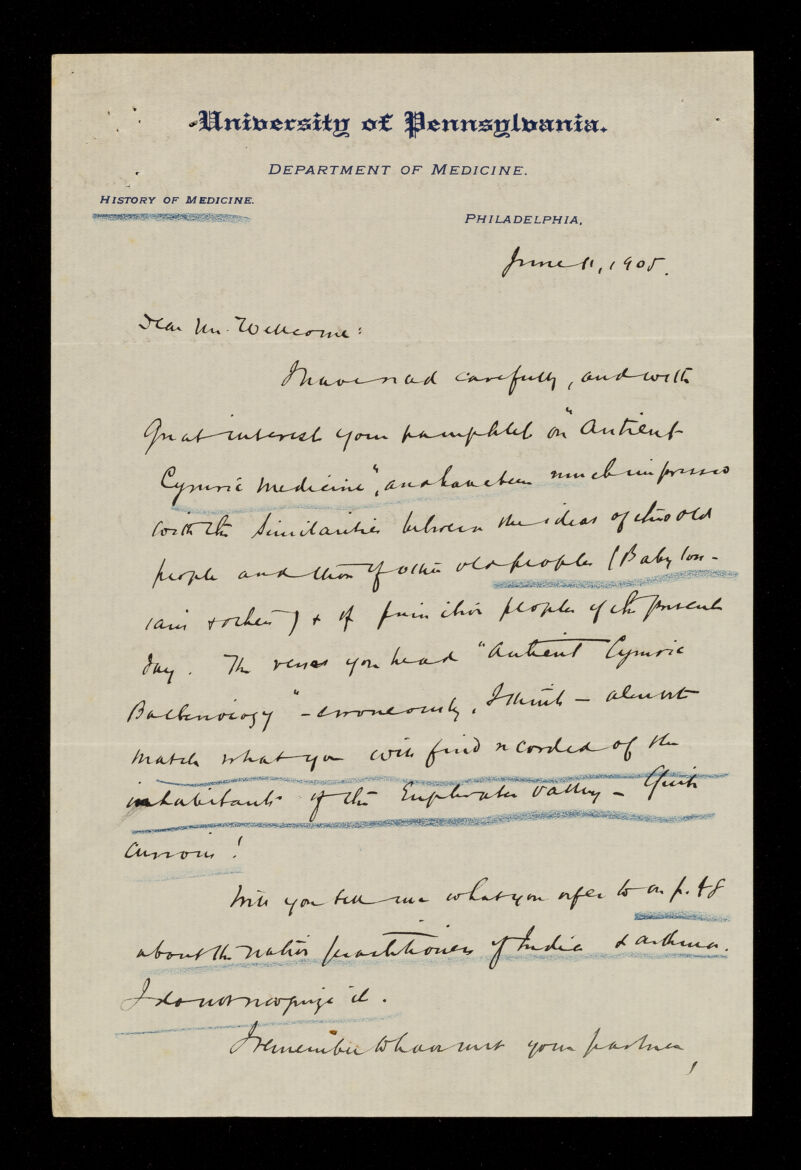 University of Pennsylvania.
DEPARTMENT OF MEDICINE.
HISTORY OF MEDICINE.
PHILADELPHIA,
June 11, 1905.
Dear Mr. Wellcome:
I have read carefully, and with
great interest your pamphlet on "Antient
Cymric Medicine", and have been much impressed
with the similarities between the ideas of this old
people and those of other old peoples (Babylon-
ians & others) & of primitive peoples of the present
day. The verses you head "Antient Cymric
Balneology" - erroneously, I think - almost
match what you will find recorded of the
inhabitants of the Euphrates valley - Quite
curious!
Will you tell me what you refer to on p. 48
about the native practitioners of India & asthma.
I do not recognize it.
I remember to have met your partner,